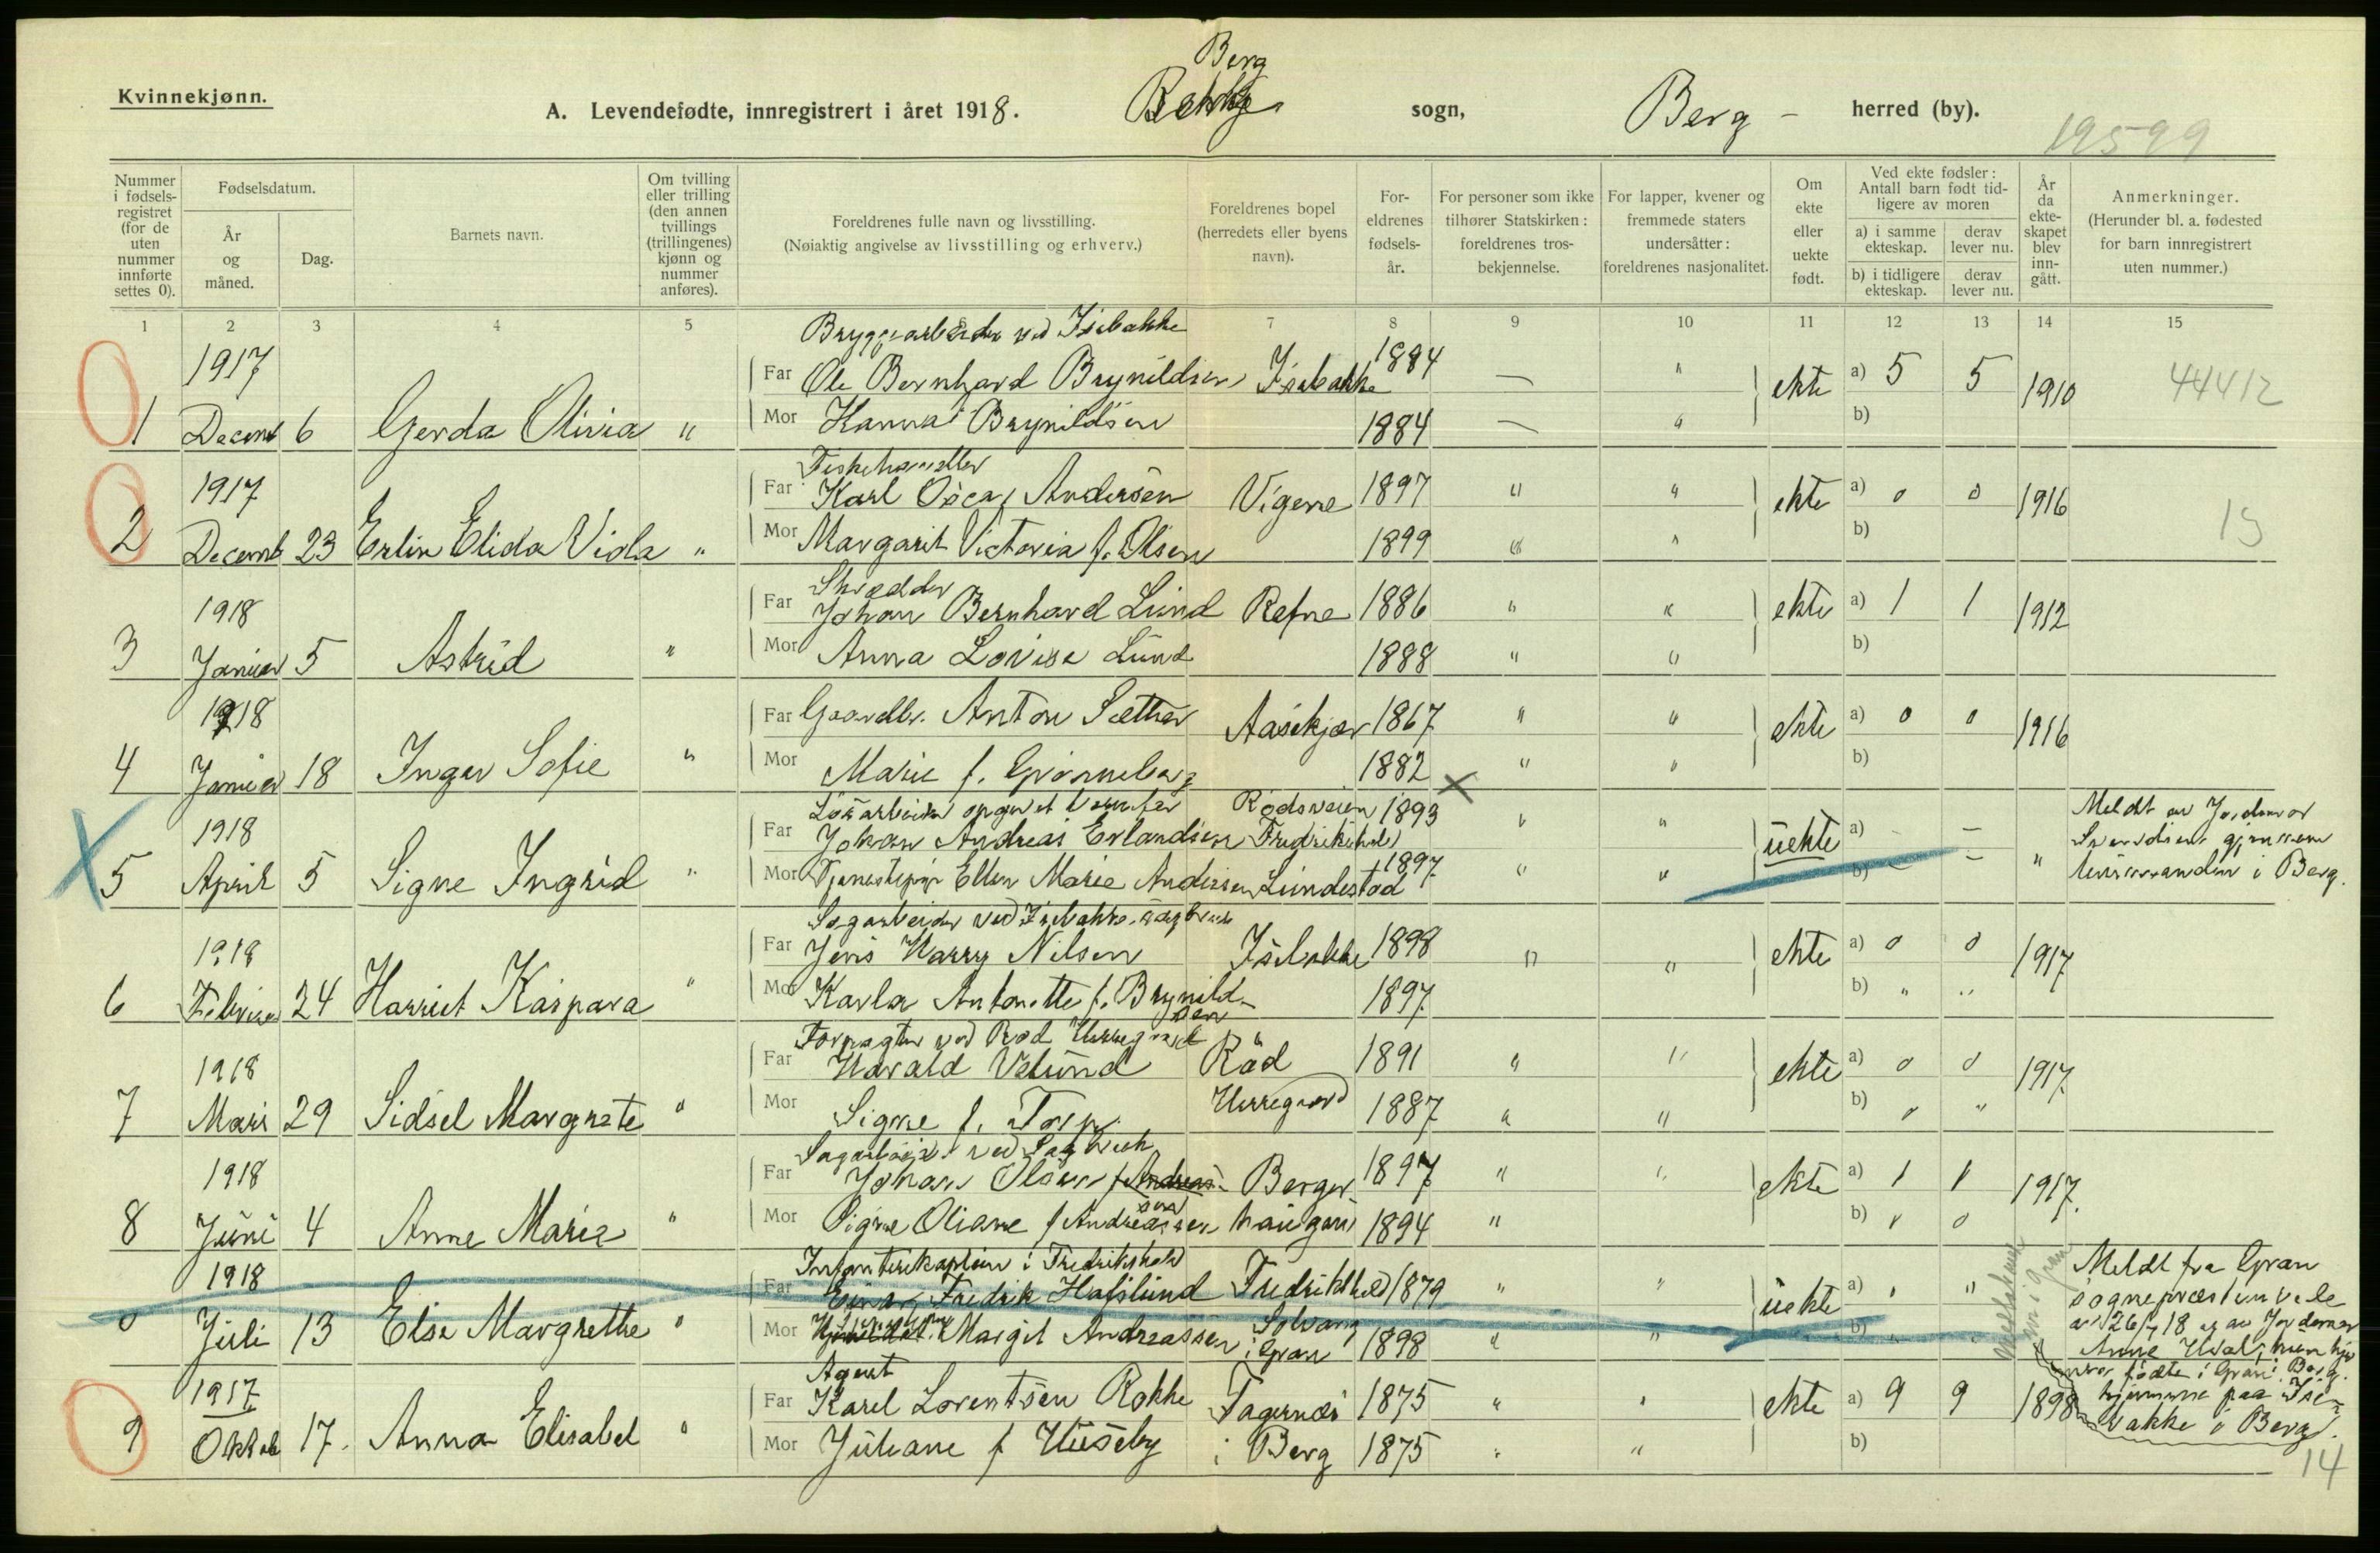 Berg
Kvinnekjønn.
A. Levendefødte, innregistrert i året 1918. sogn, Berg – herred (by).
12599
Nummer i fødselsregistret (for de uten nummer innførte settes 0).
Fødselsdatum.
År og måned.
Dag.
Barnets navn.
Om tvilling eller trilling (den annen tvillings (trillingenes) kjønn og nummer anføres).
Foreldrenes fulle navn og livsstilling.
(Nøiaktig angivelse av livsstilling og erhverv.)
Foreldrenes bopel (herredets eller byens navn).
Foreldrenes fødselsår.
For personer som ikke tilhører Statskirken: foreldrenes trosbekjennelse.
For lapper, kvener og fremmede staters undersåtter: foreldrenes nasjonalitet.
Om ekte eller uekte født.
Ved ekte fødsler: Antall barn født tidligere av moren
a) i samme ekteskap.
derav lever nu.
b) i tidligere ekteskap.
derav lever nu.
År da ekteskapet blev inngått.
Anmerkninger.
(Herunder bl. a. fødested for barn innregistrert uten nummer.)
1 2 3 4 5 6 7 8 9 10 11 12 13 14 15
Bryggearbeider ved Isebakke
1917 Far Ole Bernhard Brynildsen Isebakke 1884 — " ekte a) 5 5 1910 44412
1 Decemb 6 Gerda Olivia " Mor Hanna Brynildsen 1884 — " b)
Fiskehandler
1917 Far Karl Oscar Andersen Vigerne 1897 " " ekte a) 0 0 1916
2 Decemb 23 Erlin Elida Viola " Mor Margarit Victoria f. Olsen 1899 " " b)
15
Skrædder
1918 Far Johan Bernhard Lund Refne 1886 " " ekte a) 1 1 1912
3 Januar 5 Astrid " Mor Anna Lovise Lund 1888 " " b)
1918 Far Gaardbr. Anton Sæther Aasekjær 1867 " " ekte a) 0 0 1916
4 Januar 18 Inger Sofie " Mor Marie f. Grønneberg 1882 " " b)
Løsarbeider Rødsveien
1918 Far Johan Andreas Erlandsen Fredrikshald 1893 " " uekte a) - — Meldt av Jordmor
5 April 5 Signe Ingrid " Mor Tjenestepige Ellen Marie Andersen Lundestad 1897 " " b) - — " Svendsen gjennem
i Berg.
Sagarbeider ved Isebakke sagbruk
1918 Far Jens Harry Nilsen Isebakke 1898 " " ekte a) 0 0 1917
6 Februar 24 Harriet Kaspara " Mor Karla Antonette f. Brynildsen 1897 b) " "
Forpagter ved Rød Herregaard
1918 Far Harald Velund Rød 1891 " " ekte a) 0 0 1917
7 Mars 29 Sidsel Margrete " Mor Signe f. Torp Herregaard 1887 " " b) " "
Sagarbeider ved Sagbruk
1918 Far Johan Olsen Berger 1897 " " ekte a) 1 1 1917
8 Juni 4 Anne Marie " Mor Signe Oliane f Andreassen haugen 1894 " b) " 0
Infanterikaptein i Fredrikshald
1918 Far Einar Fredrik Hafslund Fredrikshald 1879 " " uekte a) " " Meldt fra Gran
0 Juli 13 Else Margrethe " Mor Margit Andreassen Solvang i Gran 1898 " " b) " " sogneprestembede
av 26/7 18 og av Jordmor
Anne
fødte i Gran.
hjemme paa Isebakke i Berg.
Agent
1917 Far Karel Lorentsen Rokke Fagernes 1875 " " ekte a) 9 9 1898
9 Oktob 17. Anna Elisabet " Mor Juliane f Huseby i Berg 1875 " " b)
14